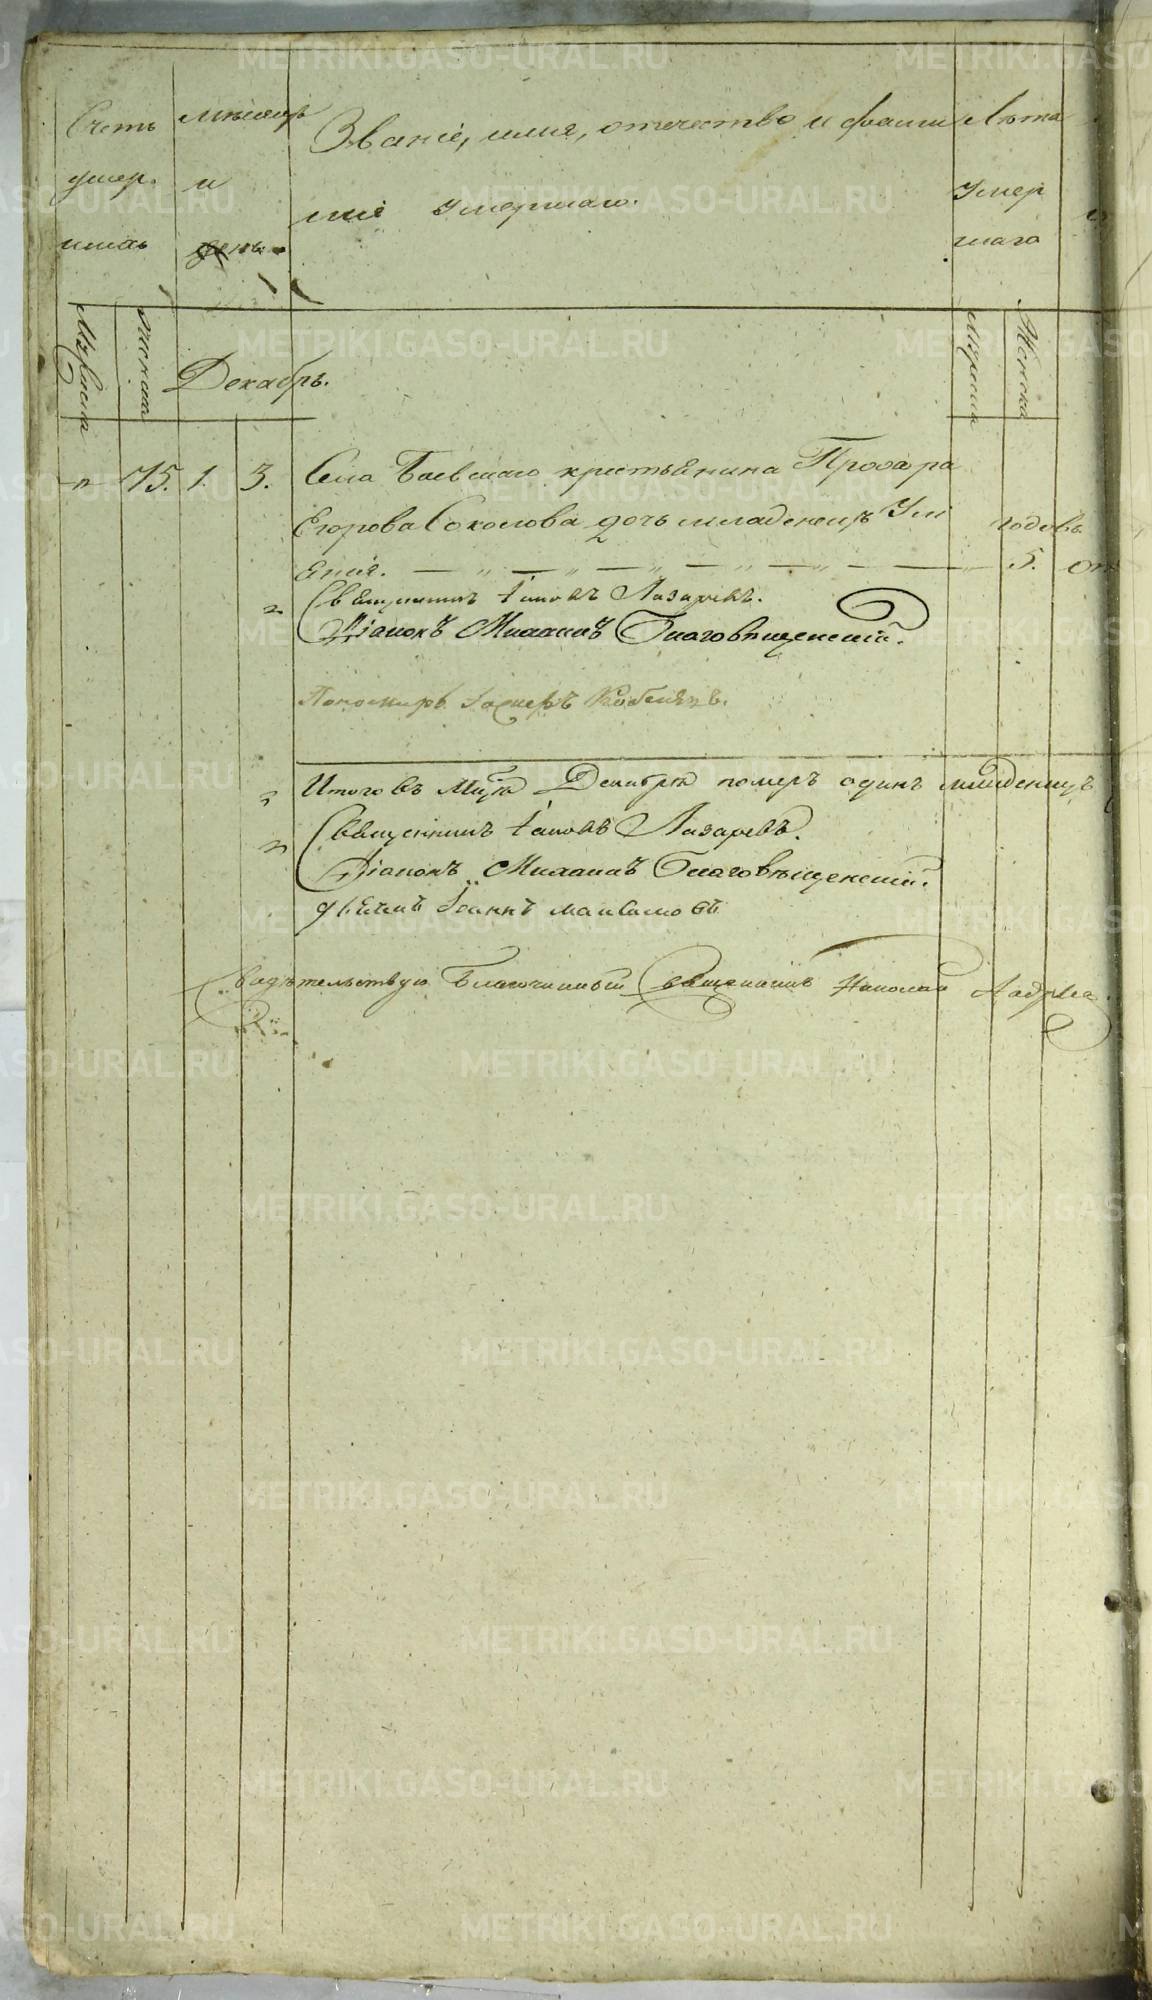 Счетъ умер. шихъ
Мѣсяцъ и день.
Званіе, имя, отчество и фами
лія умершаго.
Лѣта Умер шаго
Мужеска
Женска
Декабрь.
15. 1. 3. Села Баевскаго крестьянина Прохора
Егорова Соколова дочь младенецъ Улі
годовъ.
яніія. 5. От
Священникъ Іаковъ Лазаревъ.
Діаконъ Михаилъ Благовѣщенскій.
Пономарь
Итого въ Мцѣ Декабрѣ померъ одинъ младенецъ
Священникъ Іаковъ Лазаревъ.
Діаконъ Михаилъ Благовѣщенскій.
дьячекъ Іоаннъ Максимовъ
Свидѣтельствую Благочинный Священникъ Николай
METRIKI.GASO-URAL.RU